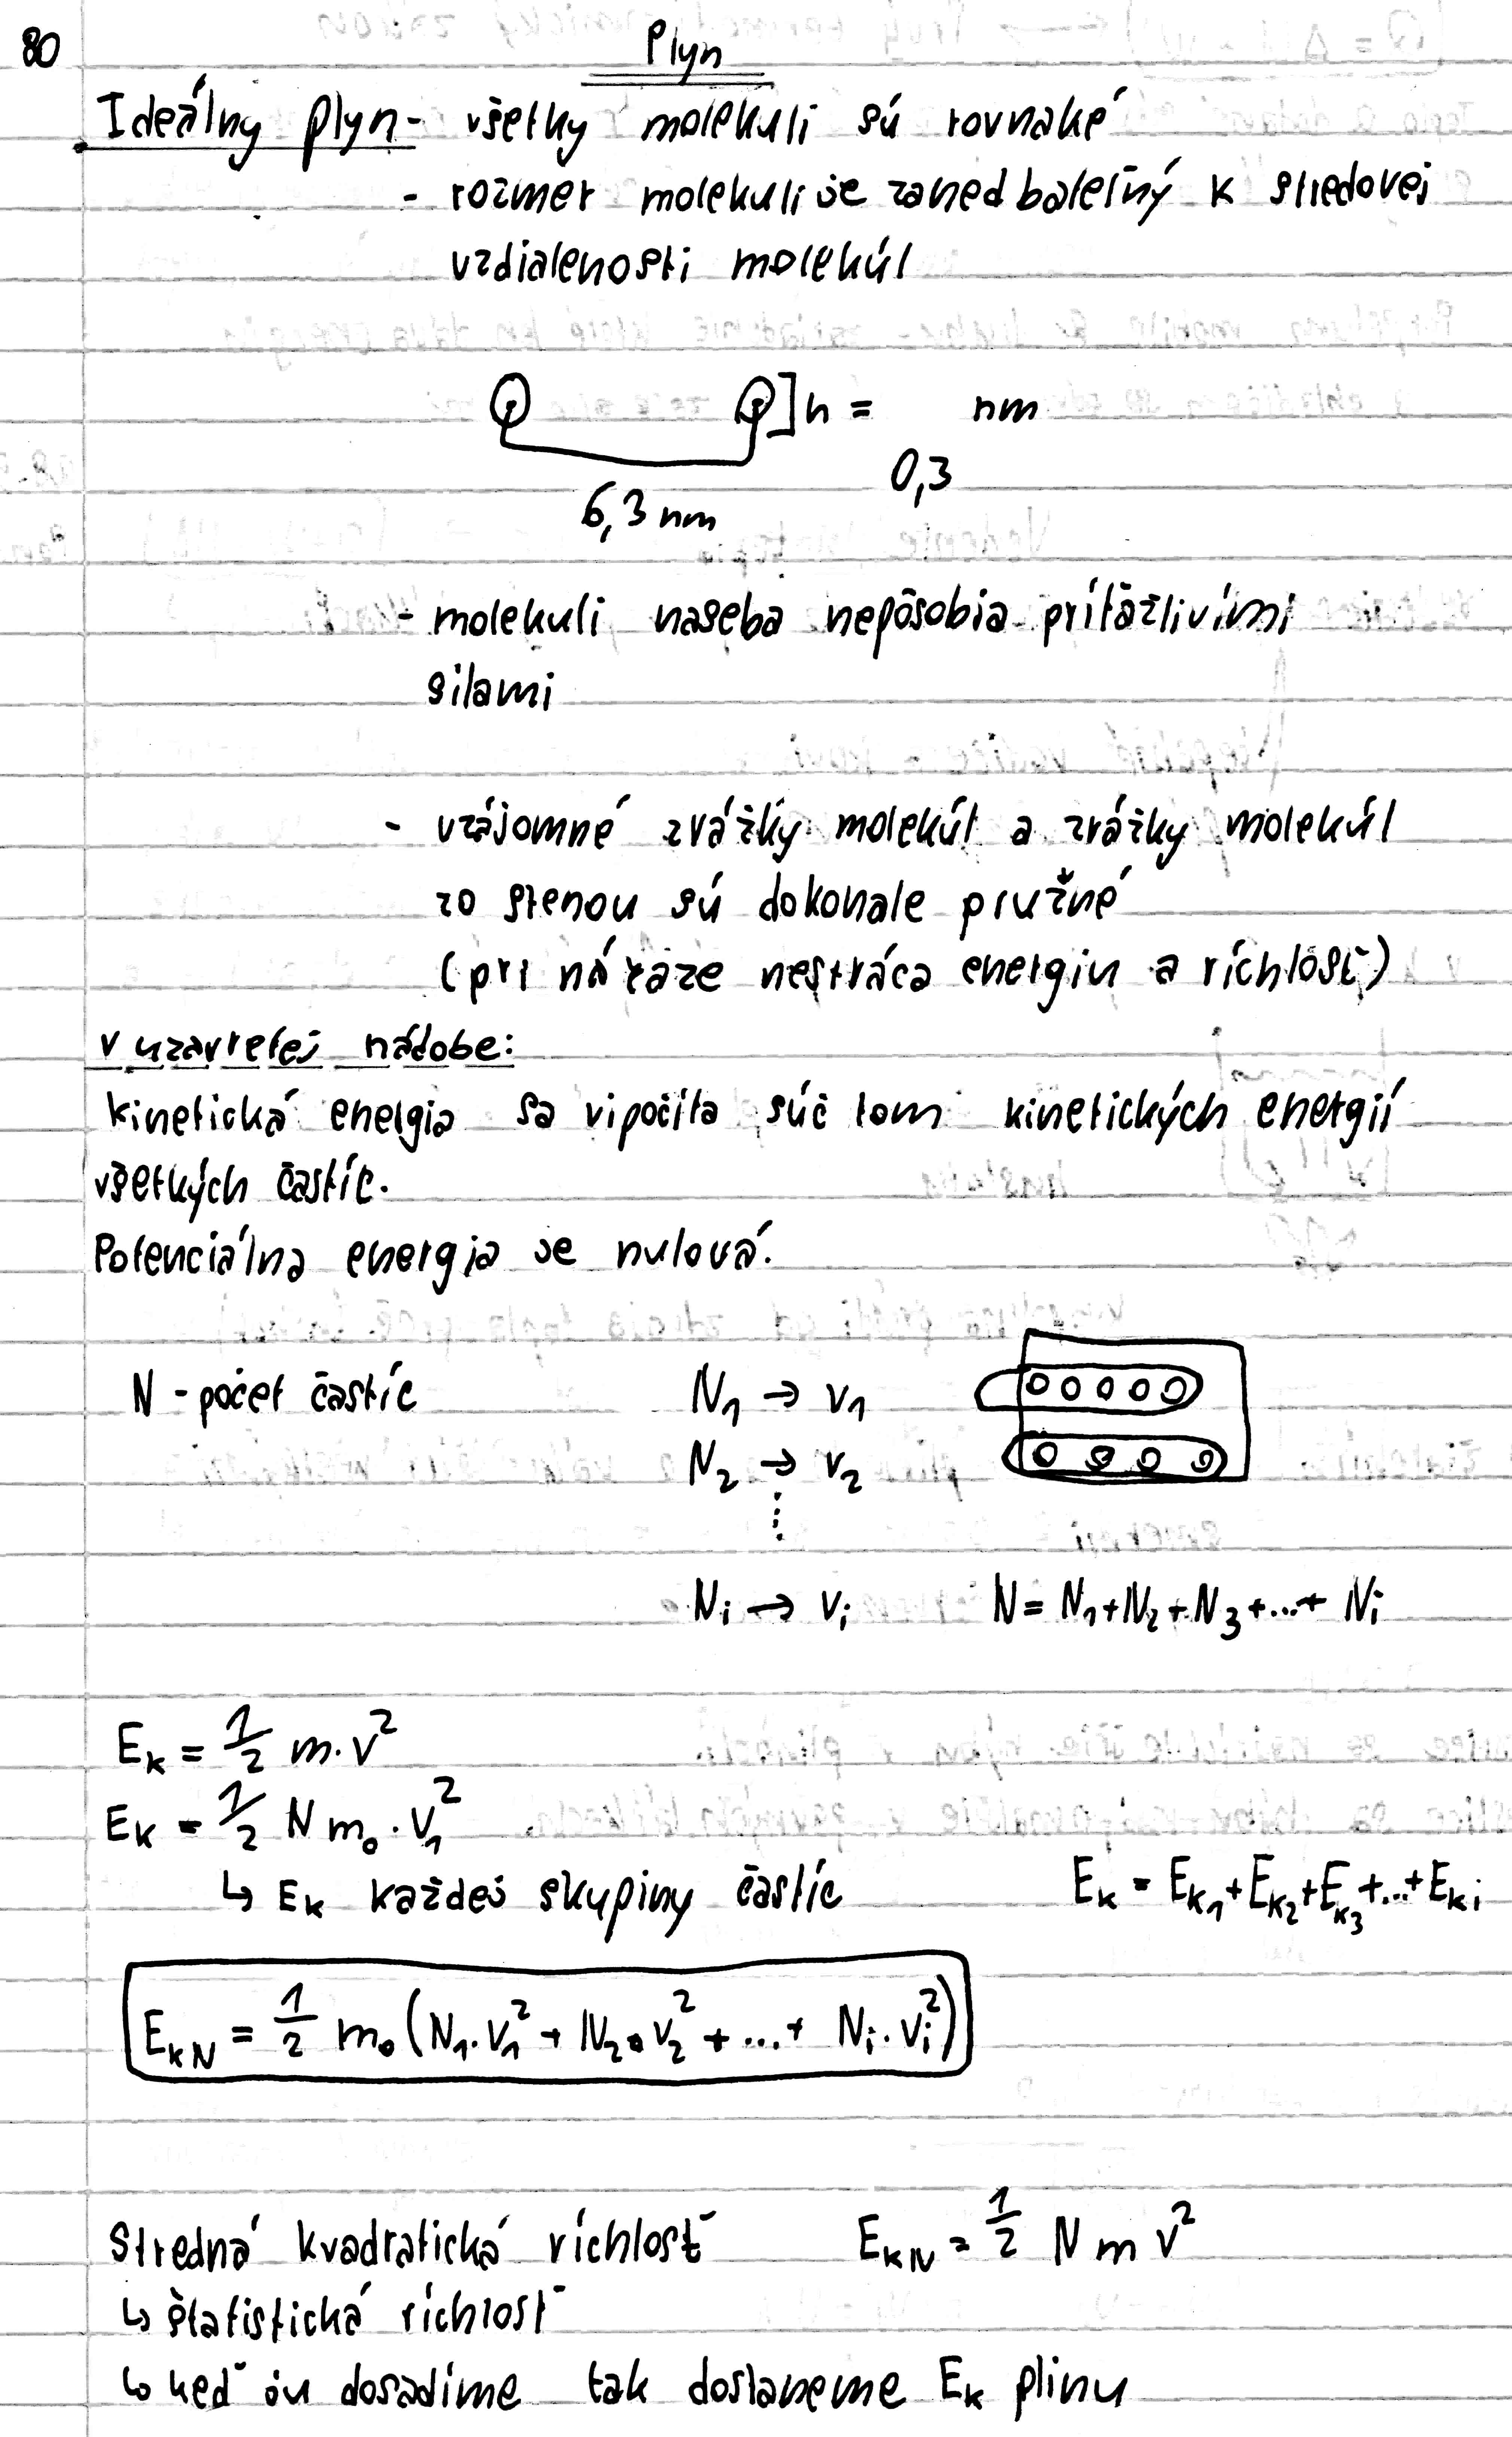 80
Plyn
Ideálny plyn - všetky molekuli sú rovnaké
- rozmer molekuli je zanedbateľný k stredovej
vzdialenosti molekúl
]h = nm
0,3
6,3 nm
- molekuli naseba nepôsobia príťažlivími
silami
- vzájomné zrážky molekúl a zrážky molekúl
zo stenou sú dokonale pružné
(pri náraze nestráca energiu a ríchlosť)
v uzavretej nádobe:
Kinetická energia sa vipočíta súčtom kinetických energií
všetkých častíc.
Potenciálna energia je nulová.
N - počet častíc N₁ → v₁
N₂ → v₂
⋮
Nᵢ → vᵢ N = N₁+N₂+N₃+...+ Nᵢ
Eₖ = 1/2 m·v²
Eₖ = 1/2 N m₀·v₁²
↳ Eₖ každej skupiny častíc Eₖ = Eₖ₁+Eₖ₂+Eₖ₃+...+Eₖᵢ
EₖN = 1/2 m₀(N₁·v₁² + N₂·v₂² + ...+ Nᵢ·vᵢ²)
Stredná kvadratická ríchlosť EₖN = 1/2 N m v²
↳ štatistická ríchlosť
↳ keď ju dosadíme tak dostaneme Eₖ plinu